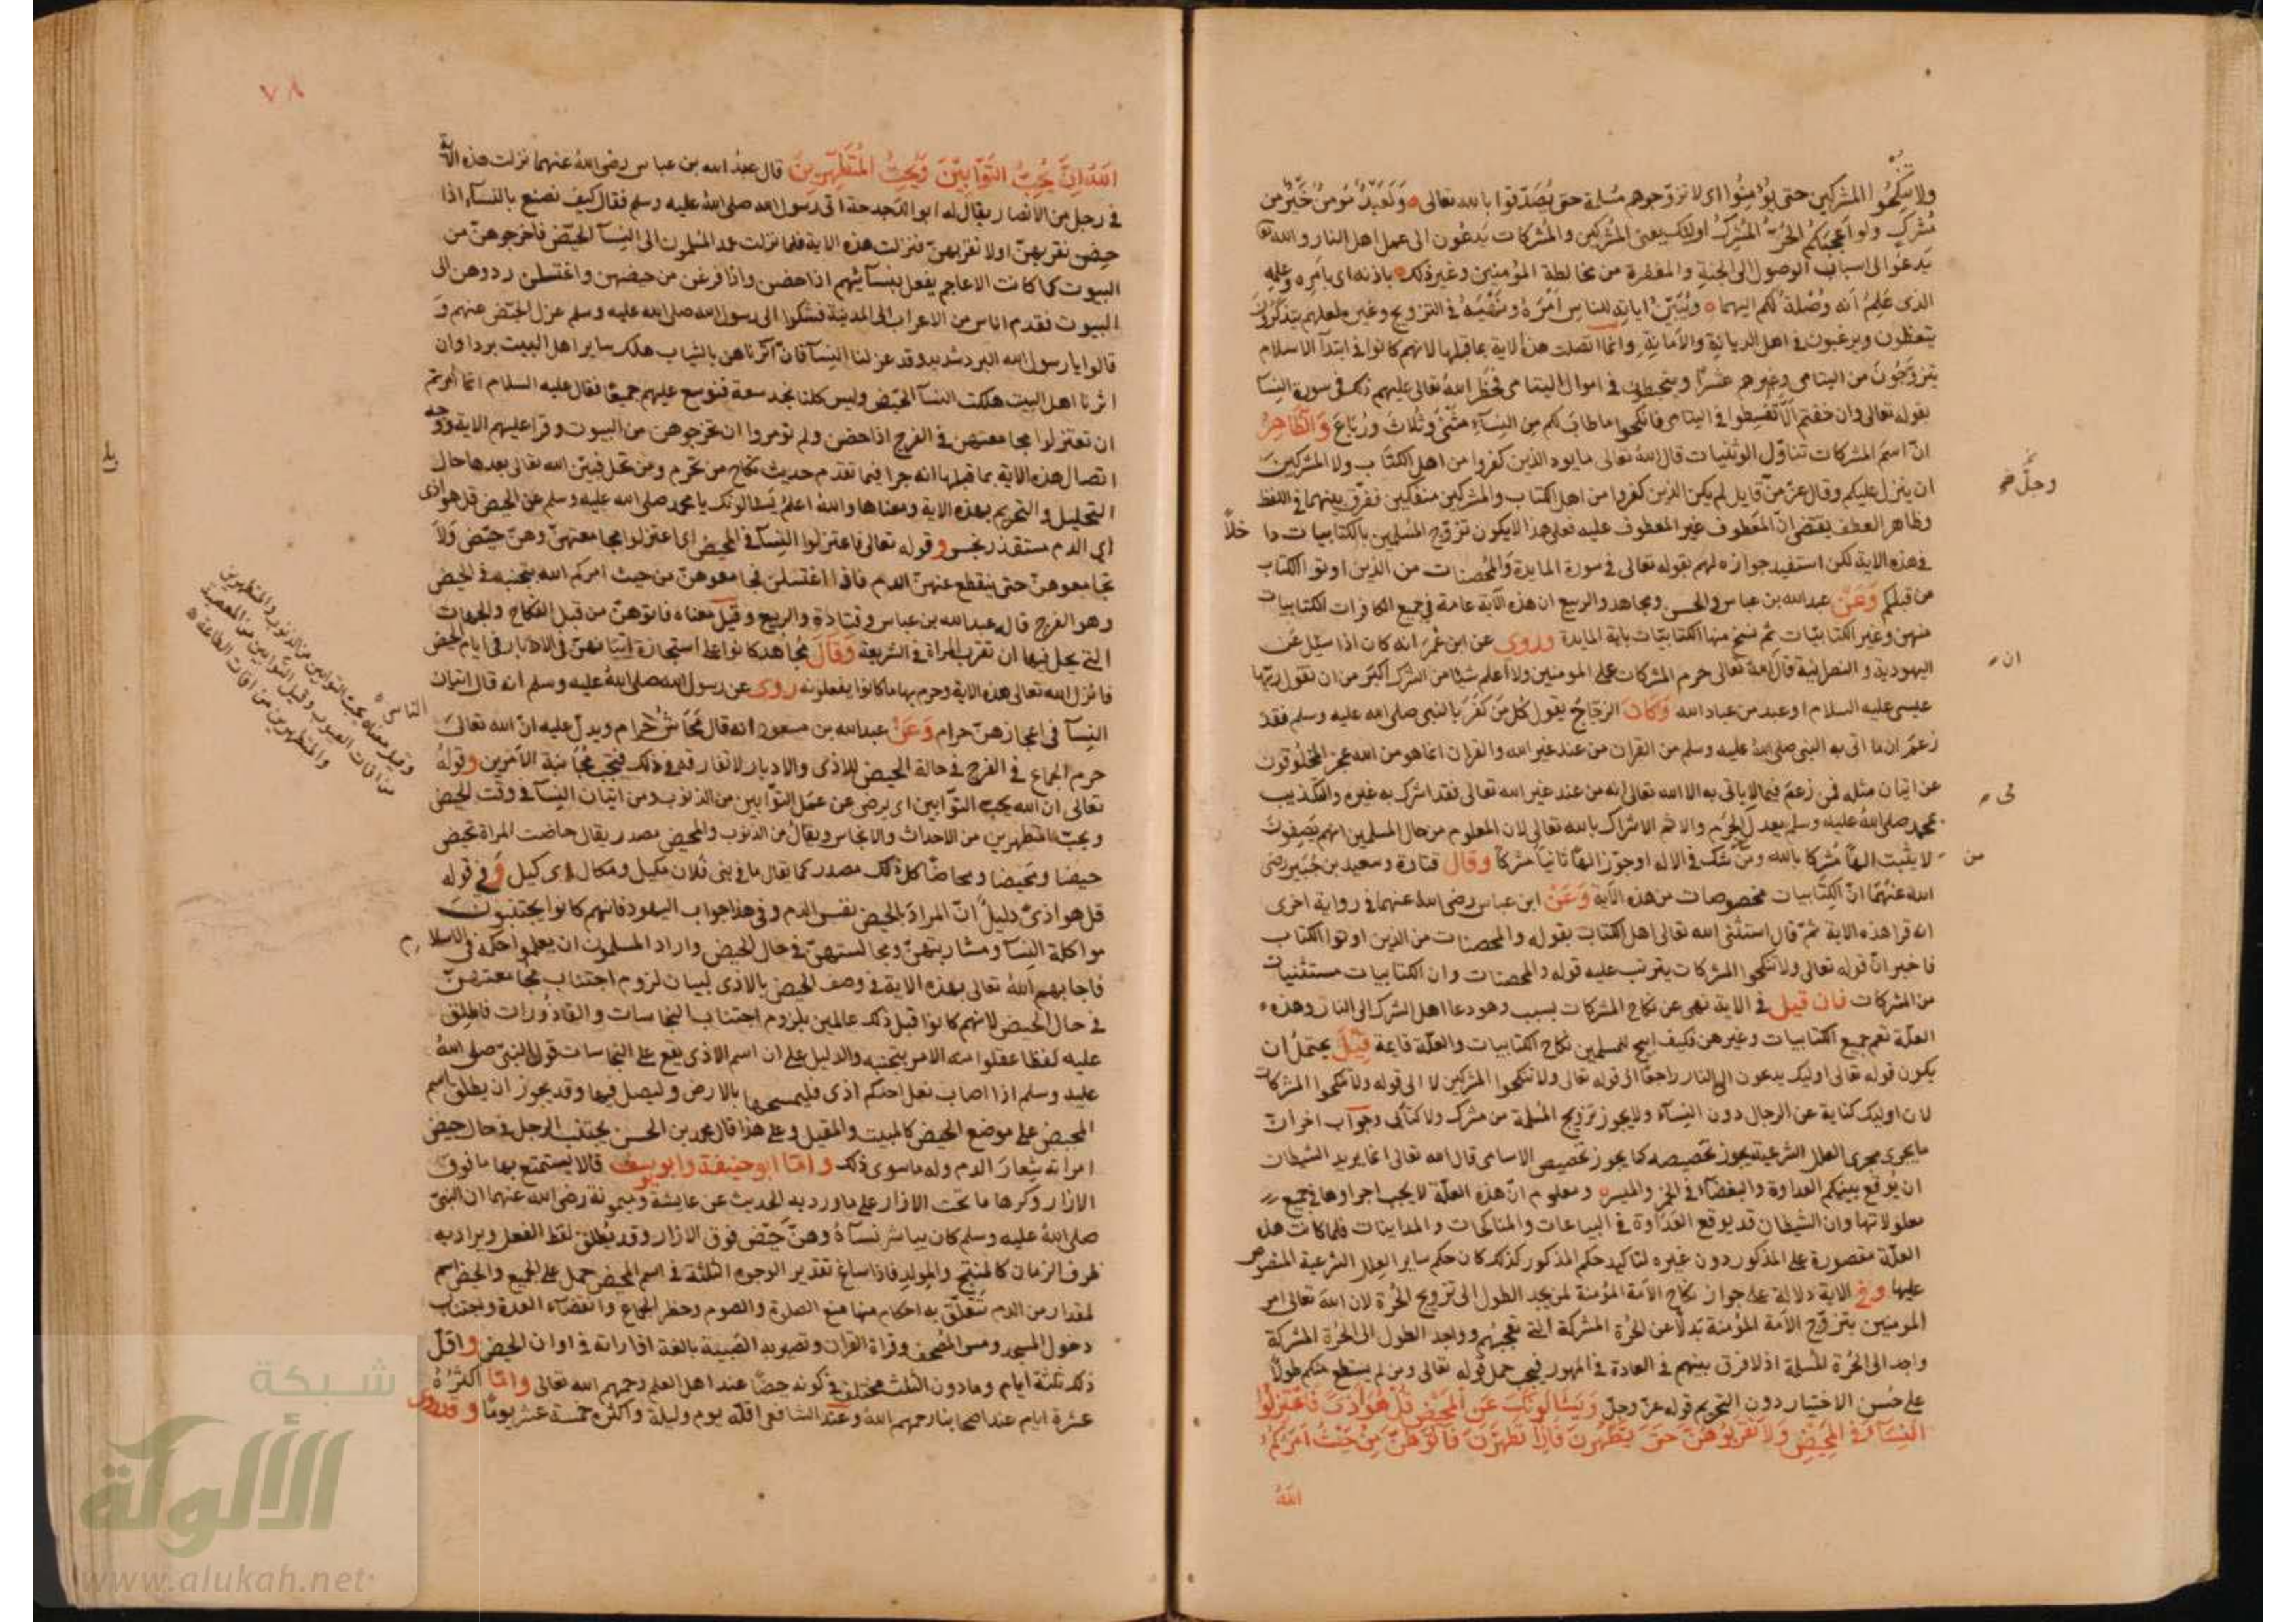 ولا تنكحوا المشركين حتى يؤمنوا اى لا تزوجوهم مسلمة حتى يصدقوا بالله تعالى ولعبد مؤمن خير من
مشرك ولو اعجبكم الحر المشرك اولئك يعنى المشركين والمشركات يدعون الى عمل اهل النار والله تعا
يدعو الى اسباب الوصول الى الجنة والمغفرة من مخالطة المؤمنين وغير ذلك باذنه اى بامره وعلمه
الذى علم انه وصلة لكم اليهما ويبين اياته للناس امره ونهيه فى التزويج وغيره لعلهم يتذكرون
يتعظون ويرغبون فى اهل الديانة والامانة وانما اتصلت هذه الاية بما قبلها لانهم كانوا فى ابتدآ الاسلام
يتزوجون من اليتامى وغيرهم عشرا فى اموال اليتامى فحظر الله تعالى عليهم ذلك فى سورة النسآ
بقوله تعالى وان خفتم الا تقسطوا فى اليتامى فانكحوا ما طاب لكم من النسآء مثنى وثلاث ورباع والظاهر
ان اسم المشركات تناول الوثنيات قال الله تعالى ما يود الذين كفروا من اهل الكتاب ولا المشركين
ان ينزل عليكم وقال عز من قايل لم يكن الذين كفروا من اهل الكتاب والمشركين منفكين ففرق بينهما فى اللفظ
وظاهر العطف يقتضى ان المعطوف غير المعطوف عليه فعلى هذا لا يكون تزوج المسلمين بالكتابيات داخلا
فى هذه الاية لكن استفيد جوازه لهم بقوله تعالى فى سورة المايدة والمحصنات من الذين اوتوا الكتاب
من قبلكم وعن عبد الله بن عباس والحسن ومجاهد والربيع ان هذه الآية عامة فى جميع الكافرات الكتابيات
منهن وغير الكتابيات ثم نسخ منها الكتابيات باية المايدة وروى عن ابن عمر انه كان اذا سئل عن
اليهودية والنصرانية قال ان الله تعالى حرم المشركات على المومنين ولا اعلم شيئا من الشرك اكبر من ان تقول ربها
عيسى عليه السلام او عبد من عباد الله وكان الزجاج يقول كل من كفر بالنبى صلى الله عليه وسلم فقد
زعم ان ما اتى به النبى صلى الله عليه وسلم من القران من عند غير الله والقران انما هو من الله عجز المخلوقون
عن اتيان مثله فمن زعم فيما لا ياتى به الا الله تعالى انه من عند غير الله تعالى فقد اشرك به غيره والتكذيب
بمحمد صلى الله عليه وسلم يعدل الجرم والاثم الاشراك بالله تعالى لان المعلوم من حال المسلمين انهم يصفون
من لا يثبت الها مشركا بالله ومن شك فى الاله او جوز الها ثانيا مشركا وقال قتادة وسعيد بن جبير رضى
الله عنهما ان الكتابيات مخصوصات من هذه الآية وعن ابن عباس رضى الله عنهما فى رواية اخرى
انه قرا هذه الاية ثم قال استثنى الله تعالى اهل الكتاب بقوله والمحصنات من الذين اوتوا الكتاب
فاخبر ان قوله تعالى ولا تنكحوا المشركات يترتب عليه قوله والمحصنات وان الكتابيات مستثنيات
من المشركات فان قيل فى الاية نهى عن نكاح المشركات بسبب وهو دعا اهل الشرك الى النار وهذه
العلة تعم جميع الكتابيات وغيرهن فكيف ابيح للمسلمين نكاح الكتابيات والعلة قايمة قيل يحتمل ان
يكون قوله تعالى اوليك يدعون الى النار راجعا الى قوله تعالى ولا تنكحوا المشركين لا الى قوله ولا تنكحوا المشركات
لان اوليك كناية عن الرجال دون النسآء ولا يجوز تزويج المسلمة من مشرك ولا كتابى وجواب اخر ان
ما يجرى مجرى العلل الشرعية يجوز تخصيصه كما يجوز تخصيص الاسامى قال الله تعالى انما يريد الشيطان
ان يوقع بينكم العداوة والبغضآء فى الخمر والميسر ومعلوم ان هذه العلة لا يجب اجراوها فى جميع
معلولاتها وان الشيطان قد يوقع العداوة فى البياعات والمناكحات والمداينات فلما كانت هذه
العلة مقصورة على المذكور دون غيره لتاكيد حكم المذكور كذلك كان حكم ساير العلل الشرعية المنصوص
عليها وفى الاية دلالة على جواز نكاح الامة المؤمنة لمن يجد الطول الى تزويج الحرة لان الله تعالى امر
المومنين بتزوج الامة المؤمنة بدلا عن الحرة المشركة التى تعجبهم وواجد الطول الى الحرة المشركة
واجد الى الحرة المسلمة اذ لا فرق بينهم فى العادة فى المهور فيجب حمل قوله تعالى ومن لم يستطع منكم طولا
على حسن الاختيار دون التحريم قوله عز وجل ويسألونك عن المحيض قل هو اذى فاعتزلوا
النسآء فى المحيض ولا تقربوهن حتى يطهرن فاذا تطهرن فاتوهن من حيث امركم
الله
وجل صح
ان
فى
من
٧٨
الله ان الله يحب التوابين ويحب المتطهرين قال عبد الله بن عباس رضى الله عنهما نزلت هذه الاية
فى رجل من الانصار يقال له ابو الدحداحة اتى رسول الله صلى الله عليه وسلم فقال كيف نصنع بالنسآء اذا
حضن نقربهن او لا نقربهن فنزلت هذه الاية فلما نزلت عمد المسلمون الى النسآ الحيض فاخرجوهن من
البيوت كما كانت الاعاجم يفعل بنسآئهم اذا حضن واذا فرغن من حيضهن واغتسلن ردوهن الى
البيوت فقدم اناس من الاعراب الى المدينة فشكوا الى رسول الله صلى الله عليه وسلم عزل الحيض عنهم و
قالوا يا رسول الله البرد شديد وقد عزلنا النسآ فان آثرناهن بالثياب هلك ساير اهل البيت بردا وان
اثرنا اهل البيت هلكت النسآ الحيض وليس كلنا يجد سعة فنوسع عليهم جميعا فقال عليه السلام انما امرتم
ان تعتزلوا مجامعتهن فى الفرج اذا حضن ولم تومروا ان تخرجوهن من البيوت وقرا عليهم الاية ووجه
اتصال هذه الاية بما قبلها انه جرا فيما تقدم حديث نكاح من تحرم ومن تحل فبين الله تعالى بعدها حال
التحليل والتحريم بهذه الاية ومعناها والله اعلم يسالونك يا محمد صلى الله عليه وسلم عن الحيض قل هو اذى
اى الدم مستقذر نجس وقوله تعالى فاعتزلوا النسآ فى المحيض اى اعتزلوا مجامعتهن وهن حيض ولا
تجامعوهن حتى ينقطع عنهن الدم فاذا اغتسلن فجامعوهن من حيث امركم الله بتجنبه فى الحيض
وهو الفرج قاله عبد الله بن عباس وقتادة والربيع وقيل معناه فاتوهن من قبل النكاح والجهات
التى يحل فيها ان تقرب المراة فى الشريعة وقال مجاهد كانوا على استجازة اتيانهن فى الادبار فى ايام الحيض
فانزل الله تعالى هذه الاية وحرم بها ما كانوا يفعلونه روى عن رسول الله صلى الله عليه وسلم انه قال اتيان
النسآ فى اعجازهن حرام وعن عبد الله بن مسعود انه قال محاش حرام ويدل عليه ان الله تعالى
حرم الجماع فى الفرج فى حالة الحيض للاذى والادبار لا تفارق فى ذلك فيجب مجانبة الامرين وقوله
تعالى ان الله يحب التوابين اى يرضى عن عمل التوابين من الذنوب ومن اتيان النسآ فى وقت الحيض
ويحب المتطهرين من الاحداث والانجاس ويقال من الذنوب والمحيض مصدر يقال حاضت المراة تحيض
حيضا ومحيضا ومحاضا كل ذلك مصدر كما يقال ما فى بنى فلان مكيل ومكال اى كيل وفى قوله
قل هو اذى دليل ان المراد بالحيض نفس الدم وفى هذا جواب اليهود فانهم كانوا يجتنبون
مواكلة النسآ ومشاربتهن ومجالستهن فى حال الحيض واراد المسلمون ان يعلموا حكمه فى الاسلام
فاجابهم الله تعالى بهذه الاية فى وصف الحيض بالاذى لبيان لزوم اجتناب مجامعتهن
فى حال الحيض لانهم كانوا قبل ذلك عالمين بلزوم اجتناب النجاسات والقاذورات فاطلق
عليه لفظا عقلوا منه الامر بتجنبه والدليل على ان اسم الاذى يقع على النجاسات قول النبى صلى الله
عليه وسلم اذا اصاب نعل احدكم اذى فليمسحها بالارض وليصل فيها وقد يجوز ان يطلق اسم
المحيض على موضع الحيض كالمبيت والمقيل وعلى هذا قال محمد بن الحسن يجتنب الرجل فى حال حيض
امراته شعار الدم وله ما سوى ذلك واما ابو حنيفة وابو يوسف قالا يستمتع بها ما فوق
الازار وكرها ما تحت الازار على ما ورد به الحديث عن عايشة وميمونة رضى الله عنهما ان النبى
صلى الله عليه وسلم كان يباشر نسآءه وهن حيض فوق الازار وقد يطلق لفظ الفعل ويراد به
ظرف الزمان كالمنتج والمولد فاذا ساغ تقدير الوجوه الثلثة فى اسم المحيض حمل على الجميع والحيض اسم
لمقدار من الدم تتعلق به احكام منها منع الصلوة والصوم وحظر الجماع وانقضآء العدة وتجتناب
دخول المسجد ومس المصحف وقراة القران وتصير به الصبية بالغة اذا راته فى اوان الحيض واقل
ذلك ثلثة ايام وما دون الثلث مختلف فى كونه حيضا عند اهل العلم رحمهم الله تعالى واما اكثره
عشرة ايام عند اصحابنا رحمهم الله وعند الشافعى اقله يوم وليلة واكثره خمسة عشر يوما وقد روى
الناس
وقيل معناه يحب التوابين من الذنوب والمتطهرين
من افات العيوب وقيل التوابين من المعصية
والمتطهرين من افات الطاعة
شبكة
الألوكة
www.alukah.net